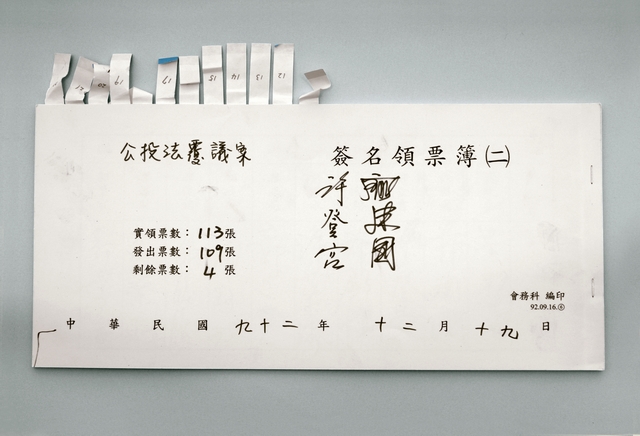 19
17
15
14
13
12
公投法覆議案
簽名領票簿㈡
龐建國
許登宮
實領票數：113張
發出票數：109張
剩餘票數：4張
會務科 編印
92.09.16.④
中華民國九十二年十二月十九日